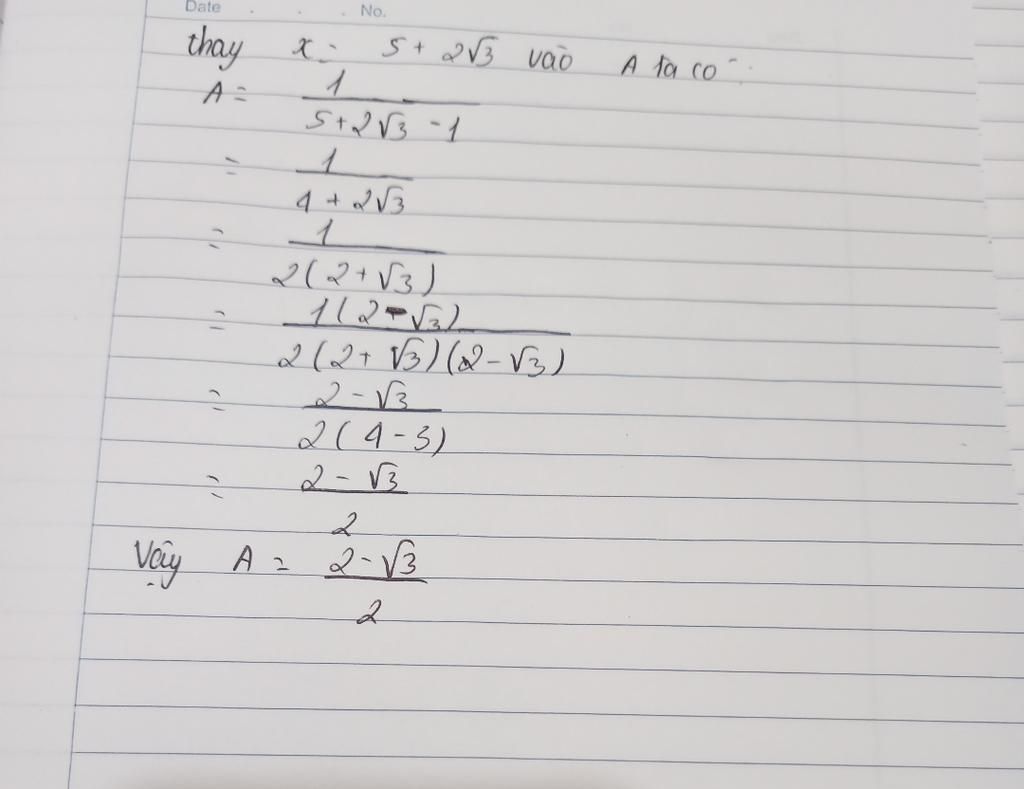 Date . . . No.
thay x = 5 + 2√3 vào A ta có :
A = 1 / (5 + 2√3 - 1)
= 1 / (4 + 2√3)
= 1 / 2(2 + √3)
= 1(2 - √3) / 2(2 + √3)(2 - √3)
= (2 - √3) / 2(4 - 3)
= (2 - √3) / 2
Vậy A = (2 - √3) / 2